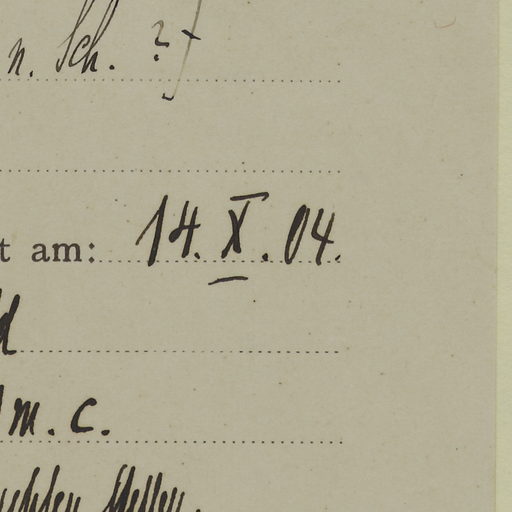 n. Sch. ?
t am: 14. X. 04.
d
m. c.
Stellen.